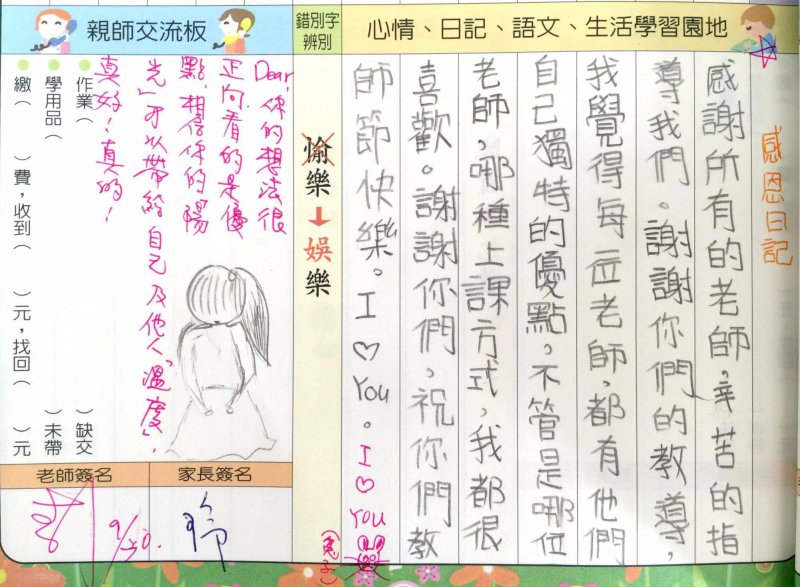 心情、日記、語文、生活學習園地
感恩日記
感謝所有的老師,辛苦的指
導我們。謝謝你們的教導,
我覺得每一位老師,都有他們
自己獨特的優點,不管是哪位
老師,哪種上課方式,我都很
喜歡。謝謝你們,祝你們教
師節快樂。I ♡ You。I ♡ You
(兔子)
錯別字
辨別
愉樂➡娛樂
親師交流板
Dear, 你的想法很
正向,看的是優
點,相信你的「陽
光」可以帶給自己及他人「溫度」,
真好!真的!
作業( )缺交
學用品( )未帶
繳( )費,收到( )元,找回( )元
家長簽名
老師簽名